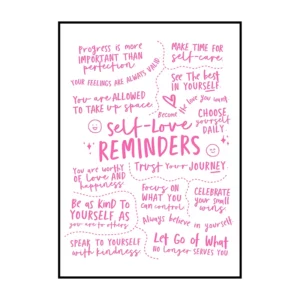 Progress is more
IMPORTANT THAN
perfection.
MAKE TIME FOR
self-care.
YOUR FEELINGS ARE ALWAYS VALID
See THE best
IN YOURSELF.
You are ALLOWED
TO TAKE UP SPACE.
Become the love you want
CHOOSE
yourself
DAILY.
self-Love
REMINDERS
You are worthy
OF LOVE AND
happiness
Trust Your JOURNEY.
FOCUS ON
WHAT YOU
can control
CELEBRATE
your small
wins
Be as KIND TO
YOURSELF AS
you are to others
Always believe in yourself
SPEAK TO YOURSELF
with kindness
Let Go of What
NO LONGER SERVES YOU